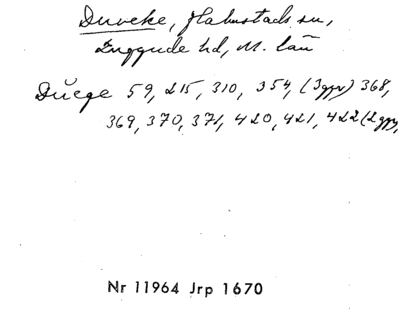 Duveke, Halmstads sn,
Luggude hd, M. län
Dŭege 59, 215, 310, 354, (3ggr) 368,
369, 370, 371, 420, 421, 422 (2ggr,
Nr 11964 Jrp 1670